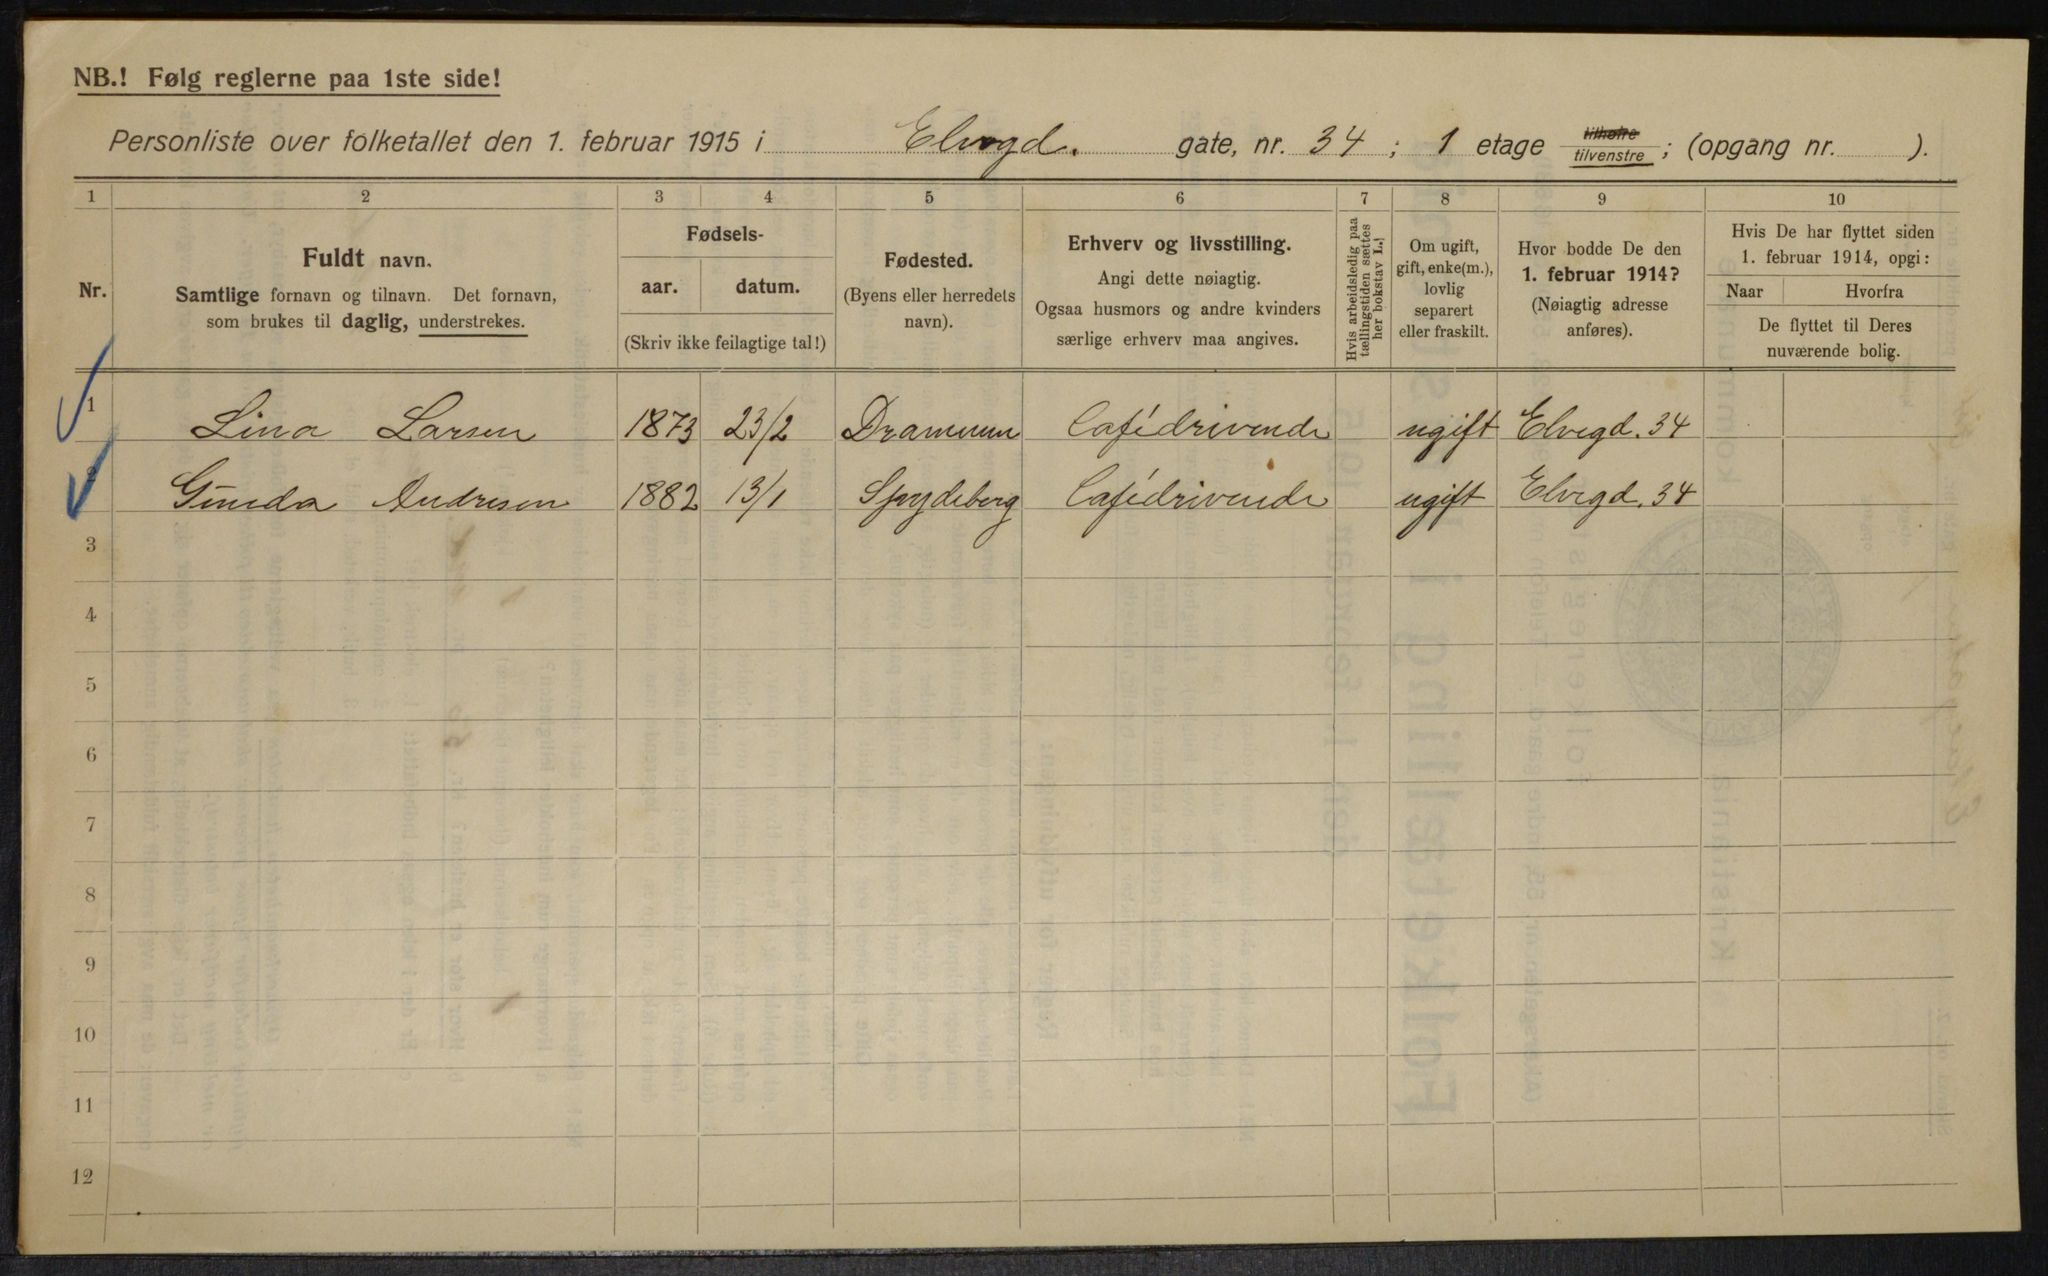 NB.! Følg reglerne paa 1ste side!
Personliste over folketallet den 1. februar 1915 i Elvegd. gate, nr. 34 ; 1 etage tilhøire tilvenstre ; (opgang nr. ).
1 2 3 4 5 6 7 8 9 10
Nr.
Fuldt navn.
Samtlige fornavn og tilnavn. Det fornavn,
som brukes til daglig, understrekes.
Fødsels-
aar. datum.
(Skriv ikke feilagtige tal!)
Fødested.
(Byens eller herredets
navn).
Erhverv og livsstilling.
Angi dette nøiagtig.
Ogsaa husmors og andre kvinders
særlige erhverv maa angives.
Hvis arbeidsledig paa
tællingstiden sættes
her bokstav L.!
Om ugift,
gift, enke(m.),
lovlig
separert
eller fraskilt.
Hvor bodde De den
1. februar 1914?
(Nøiagtig adresse
anføres).
Hvis De har flyttet siden
1. februar 1914, opgi:
Naar Hvorfra
De flyttet til Deres
nuværende bolig.
1 Lina Larsen 1873 23/2 Drammen Cafédrivende ugift Elvegd. 34
2 Gunda Andresen 1882 13/1 Spydeberg Cafédrivende ugift Elvegd. 34
3
4
5
6
7
8
9
10
11
12